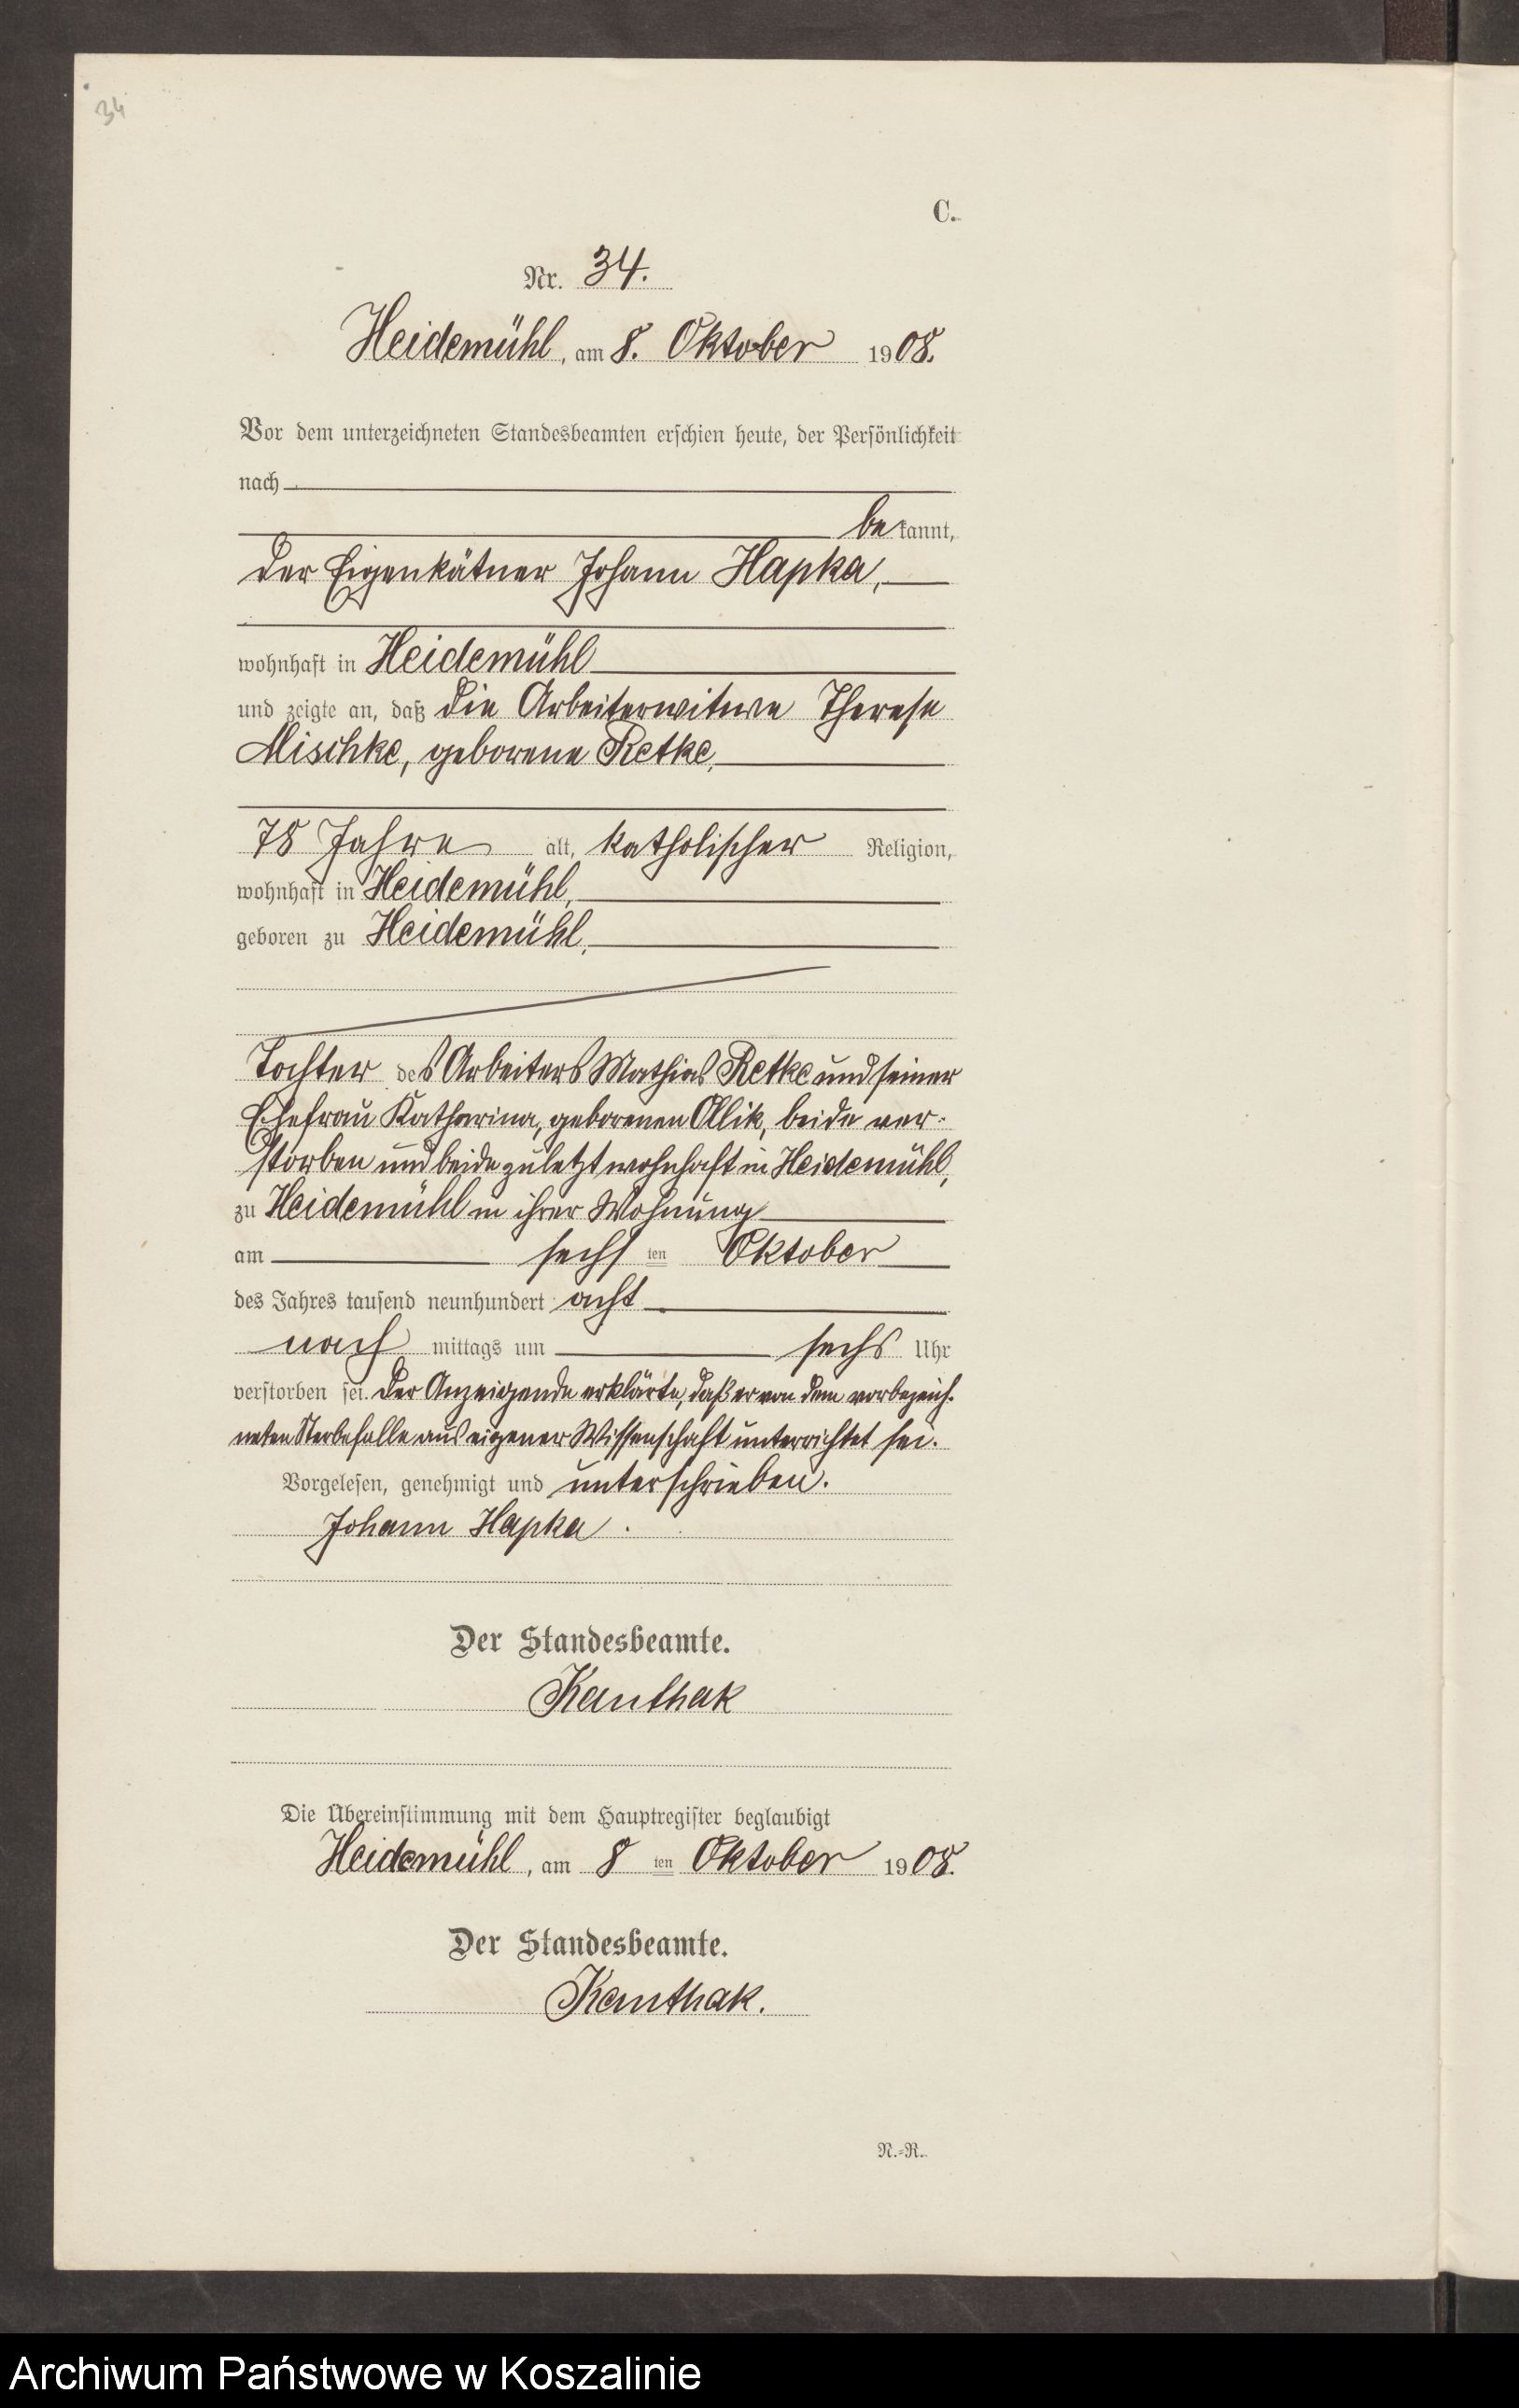 34
C.
Nr. 34.
Heidemühl, am 8. Oktober 1908.
Vor dem unterzeichneten Standesbeamten erschien heute, der Persönlichkeit
nach
bekannt,
der Eigenkätner Johann Hapka,
wohnhaft in Heidemühl
und zeigte an, daß die Arbeiterwitwe Therese
Mischke, geborene Retke,
78 Jahre alt, katholischer Religion,
wohnhaft in Heidemühl,
geboren zu Heidemühl,
Tochter des Arbeiters Mathias Retke und seiner
Ehefrau Katharina, geborenen Ollik, beide ver-
storben und beide zuletzt wohnhaft in Heidemühl,
zu Heidemühl in ihrer Wohnung
am sechsten Oktober
des Jahres tausend neunhundert acht
nachmittags um sechs Uhr
verstorben sei. Der Anzeigende erklärte, daß er von dem vorbezeich-
neten Sterbefalle aus eigener Wissenschaft unterrichtet sei.
Vorgelesen, genehmigt und unterschrieben.
Johann Hapka.
Der Standesbeamte.
Kanthak
Die Übereinstimmung mit dem Hauptregister beglaubigt
Heidemühl, am 8ten Oktober 1908.
Der Standesbeamte.
Kanthak.
N.-R.
Archiwum Państwowe w Koszalinie